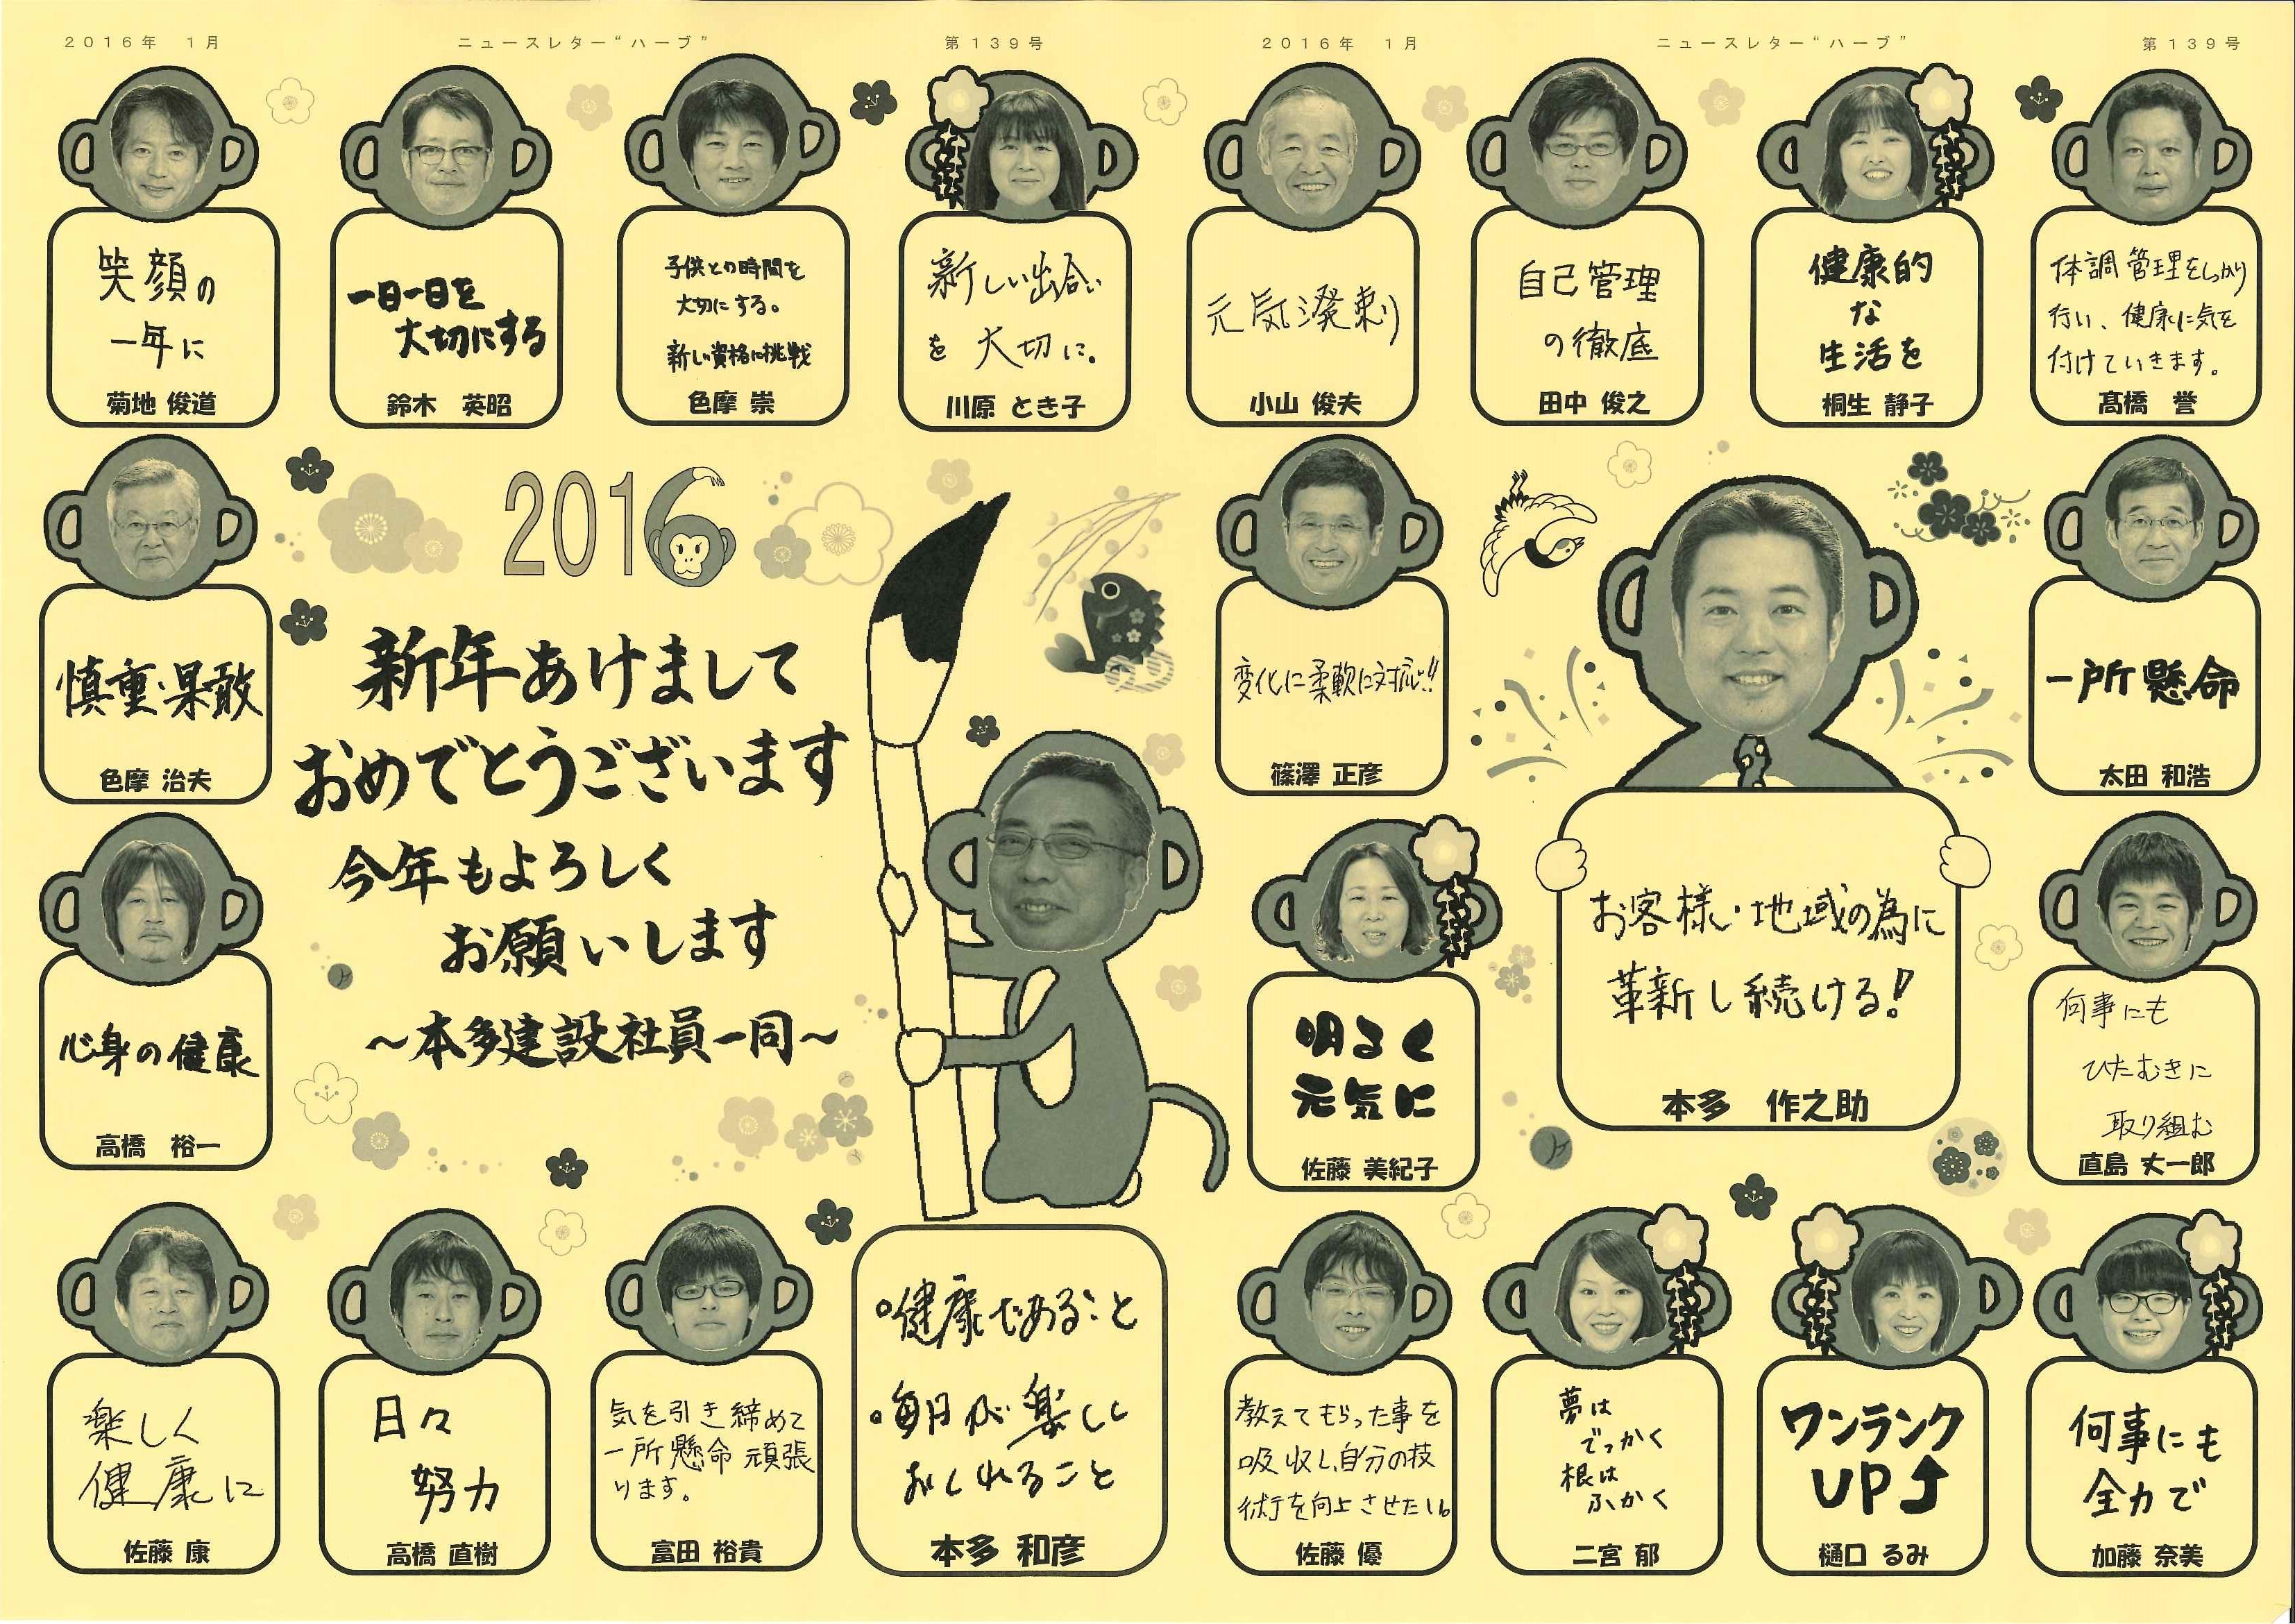 2016年 1月
ニュースレター“ハーブ”
第139号
2016年 1月
ニュースレター“ハーブ”
第139号
笑顔の
一年に
菊地 俊道
一日一日を
大切にする
鈴木 英昭
子供との時間を
大切にする。
新しい資格に挑戦
色摩 崇
新しい出会い
を 大切に。
川原 とき子
元気溌剌
小山 俊夫
自己管理
の徹底
田中 俊之
健康的
な
生活を
桐生 静子
体調管理をしっかり
行い、健康に気を
付けていきます。
髙橋 誉
慎重・果敢
色摩 治夫
2016
新年あけまして
おめでとうございます
今年もよろしく
お願いします
～本多建設社員一同～
変化に柔軟に対応!!
篠澤 正彦
お客様・地域の為に
革新し続ける!
本多 作之助
一所懸命
太田 和浩
心身の健康
高橋 裕一
明るく
元気に
佐藤 美紀子
何事にも
ひたむきに
取り組む
直島 丈一郎
楽しく
健康に
佐藤 康
日々
努力
高橋 直樹
気を引き締めて
一所懸命 頑張
ります。
富田 裕貴
健康であること
毎日が楽しく
おくれること
本多 和彦
教えてもらった事を
吸収し、自分の技
術を向上させたい。
佐藤 優
夢は
でっかく
根は
ふかく
二宮 郁
ワンランク
UP↑
樋口 るみ
何事にも
全力で
加藤 奈美